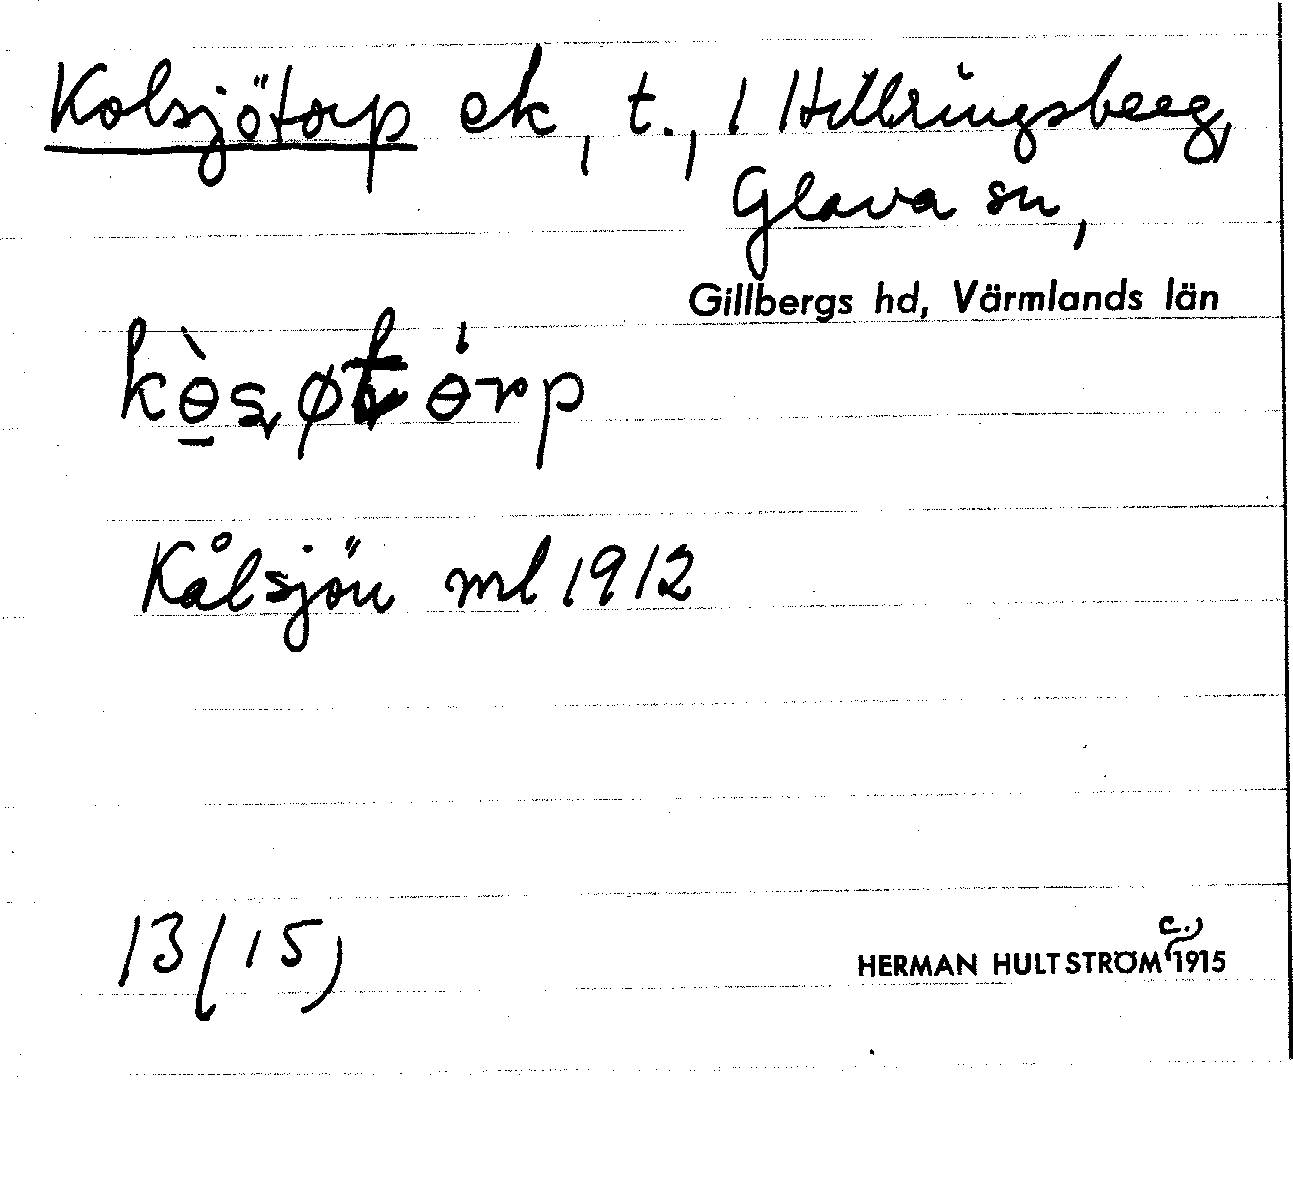 Kolsjötorp ek, t., 1 Hillringsberg,
Glava sn,
Gillbergs hd, Värmlands län
Kålsjön ml 1912
13 (15)
c.
HERMAN HULTSTRÖM 1915